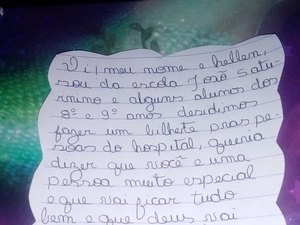 Oi! meu nome e hellem,
sou da escola José Satu-
rnino e alguns alunos dos
8º e 9º anos desidimos
fazer um bilhete pras pe-
soas do hospital, queria
dizer que você e uma
pessoa muito especial
e que vai ficar tudo
bem e que deus vai